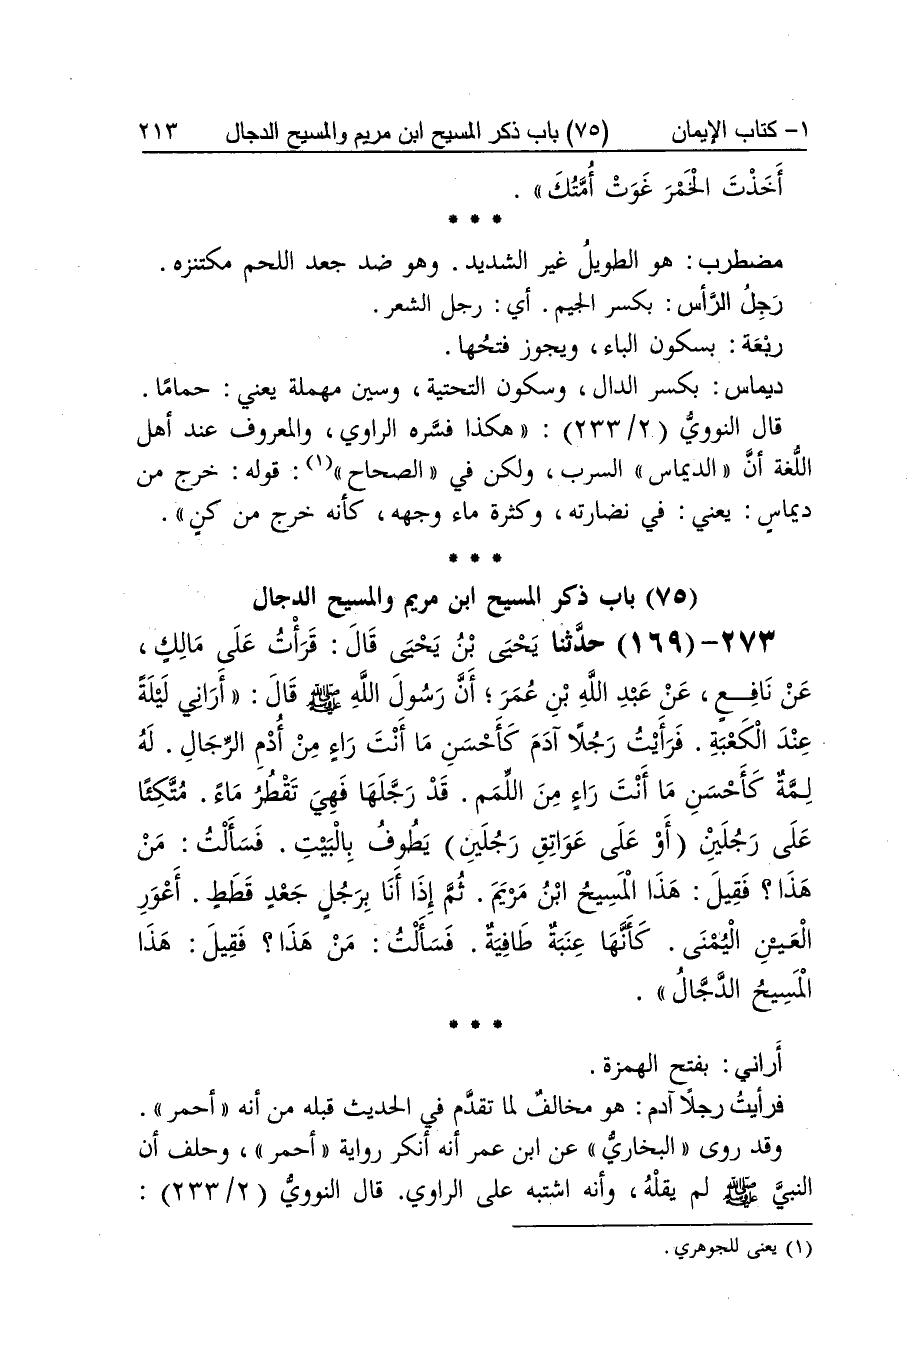 ١- كتاب الإيمان (٧٥) باب ذكر المسيح ابن مريم والمسيح الدجال ٢١٣
أَخَذْتَ الْخَمْرَ غَوَتْ أُمَّتُكَ» .
* * *
مضطرب: هو الطويلُ غير الشديد. وهو ضد جعد اللحم مكتنزه.
رَجِلُ الرَّأس: بكسر الجيم. أي: رجل الشعر.
ربْعَة: بسكون الباء، ويجوز فتحُها.
ديماس: بكسر الدال، وسكون التحتية، وسين مهملة يعني: حمامًا.
قال النوويُّ (٢/ ٢٣٣) : «هكذا فسَّره الراوي، والمعروف عند أهل
اللُّغة أنَّ «الديماس» السرب، ولكن في «الصحاح»(١): قوله: خرج من
ديماسٍ: يعني: في نضارته، وكثرة ماء وجهه، كأنه خرج من كنٍ».
* * *
(٧٥) باب ذكر المسيح ابن مريم والمسيح الدجال
٢٧٣-(١٦٩) حدَّثنا يَحْيَى بْنُ يَحْيَى قَالَ: قَرَأْتُ عَلَى مَالِكٍ،
عَنْ نَافِعٍ، عَنْ عَبْدِ اللَّهِ بْنِ عُمَرَ؛ أَنَّ رَسُولَ اللَّهِ ﷺ قَالَ: «أَرَانِي لَيْلَةً
عِنْدَ الْكَعْبَةِ. فَرَأَيْتُ رَجُلًا آدَمَ كَأَحْسَنِ مَا أَنْتَ رَاءٍ مِنْ أُدْمِ الرِّجَالِ. لَهُ
لِمَّةٌ كَأَحْسَنِ مَا أَنْتَ رَاءٍ مِنَ اللِّمَمِ. قَدْ رَجَّلَهَا فَهِيَ تَقْطُرُ مَاءً. مُتَّكِئًا
عَلَى رَجُلَيْنِ (أَوْ عَلَى عَوَاتِقِ رَجُلَينِ) يَطُوفُ بِالْبَيْتِ. فَسَأَلْتُ: مَنْ
هَذَا؟ فَقِيلَ: هَذَا الْمَسِيحُ ابْنُ مَرْيَمَ. ثُمَّ إِذَا أَنَا بِرَجُلٍ جَعْدٍ قَطَطٍ. أَعْوَرِ
الْعَيْنِ الْيُمْنَى. كَأَنَّهَا عِنَبَةٌ طَافِيَةٌ. فَسَأَلْتُ: مَنْ هَذَا؟ فَقِيلَ: هَذَا
الْمَسِيحُ الدَّجَّالُ» .
* * *
أَراني: بفتح الهمزة.
فرأيتُ رجلًا آدم: هو مخالفٌ لما تقدَّم في الحديث قبله من أنه «أحمر».
وقد روى «البخاريُّ» عن ابن عمر أنه أنكر رواية «أحمر»، وحلف أن
النبيَّ ﷺ لم يقلْهُ، وأنه اشتبه على الراوي. قال النوويُّ (٢/ ٢٣٣) :
(١) يعنى للجوهري.